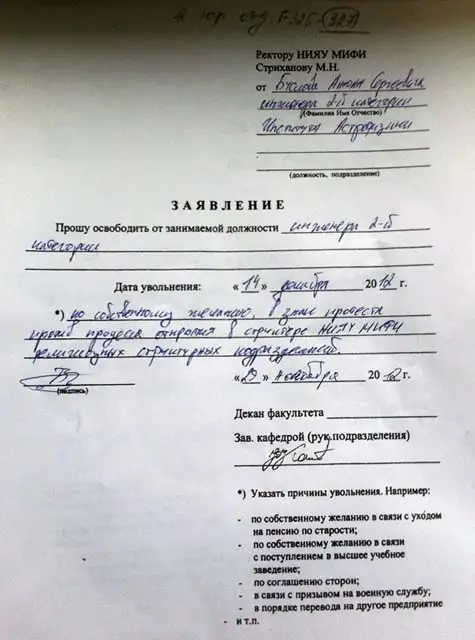 в юр. отд Г-325 (327)
Ректору НИЯУ МИФИ
Стриханову М.Н.
от Буслова Антона Сергеевича
инженера 2-й категории
(Фамилия Имя Отчество)
Института Астрофизики
(должность, подразделение)
ЗАЯВЛЕНИЕ
Прошу освободить от занимаемой должности инженера 2-й
категории
Дата увольнения: «14» декабря 2012 г.
*) по собственному желанию, в знак протеста
против процесса открытия в структуре НИЯУ МИФИ
религиозных структурных подразделений.
(подпись)
«29» ноября 2012 г.
Декан факультета
Зав. кафедрой (рук.подразделения)
*) Указать причины увольнения. Например:
- по собственному желанию в связи с уходом
на пенсию по старости;
- по собственному желанию в связи
с поступлением в высшее учебное
заведение;
- по соглашению сторон;
- в связи с призывом на военную службу;
- в порядке перевода на другое предприятие
- и т.п.